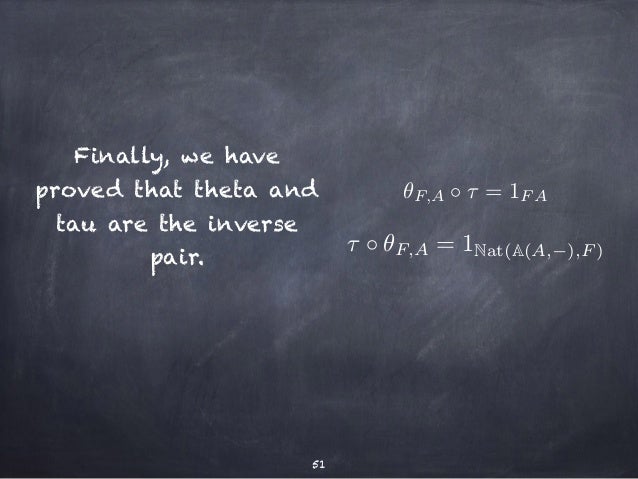 Finally, we have
proved that theta and
tau are the inverse
pair.
θ_{F,A} ∘ τ = 1_{FA}
τ ∘ θ_{F,A} = 1_{ℕat(𝔸(A,−),F)}
51